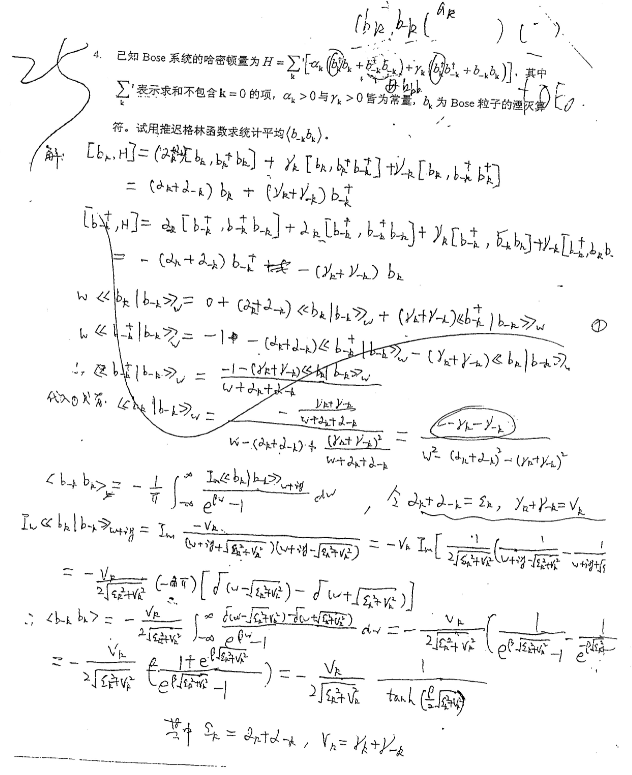 (b_k, b_{-k} ( a_k ) ( - )
4. 已知 Bose 系统的哈密顿量为 H = ∑_k' [α_k(b_k^† b_k + b_{-k}^† b_{-k}) + γ_k(b_k^† b_{-k}^† + b_{-k} b_k)]. 其中
+ E_0
∑_k' 表示求和不包含 k = 0 的项, α_k > 0 与 γ_k > 0 皆为常量, b_k 为 Bose 粒子的湮灭算
符。试用推迟格林函数求统计平均⟨b_{-k} b_k⟩.
解: [b_k, H] = (α_k+α_{-k})[b_k, b_k^† b_k] + γ_k [b_k, b_k^† b_{-k}^†] + γ_{-k} [b_k, b_{-k}^† b_k^†]
= (α_k+α_{-k}) b_k + (γ_k+γ_{-k}) b_{-k}^†
[b_{-k}^†, H] = α_k [b_{-k}^†, b_{-k}^† b_{-k}] + α_{-k} [b_{-k}^†, b_{-k}^† b_{-k}] + γ_k [b_{-k}^†, b_{-k} b_k] + γ_{-k} [b_{-k}^†, b_k b
= - (α_k+α_{-k}) b_{-k}^† - (γ_k+γ_{-k}) b_k
w ≪b_k|b_{-k}≫_w = 0 + (α_k+α_{-k}) ≪b_k|b_{-k}≫_w + (γ_k+γ_{-k}) ≪b_{-k}^†|b_{-k}≫_w ①
w ≪b_{-k}^†|b_{-k}≫_w = -1 - (α_k+α_{-k}) ≪b_{-k}^†|b_{-k}≫_w - (γ_k+γ_{-k}) ≪b_k|b_{-k}≫_w
∴ ≪b_{-k}^†|b_{-k}≫_w = \frac{-1-(γ_k+γ_{-k})≪b_k|b_{-k}≫_w}{w+α_k+α_{-k}}
代入①式有: ≪b_k|b_{-k}≫_w = \frac{-\frac{γ_k+γ_{-k}}{w+α_k+α_{-k}}}{w-(α_k+α_{-k})+\frac{(γ_k+γ_{-k})^2}{w+α_k+α_{-k}}} = \frac{-γ_k-γ_{-k}}{w^2-(α_k+α_{-k})^2-(γ_k+γ_{-k})^2}
<b_{-k} b_k> = -\frac{1}{π} ∫_{-∞}^{∞} \frac{Im≪b_k|b_{-k}≫_{w+iy}}{e^{βw}-1} dw , 令 α_k+α_{-k} = ε_k, γ_k+γ_{-k} = V_k
Im≪b_k|b_{-k}≫_{w+iy} = Im \frac{-V_k}{(w+iy+\sqrt{ε_k^2+V_k^2})(w+iy-\sqrt{ε_k^2+V_k^2})} = -V_k Im[\frac{1}{2\sqrt{ε_k^2+V_k^2}}(\frac{1}{w+iy-\sqrt{ε_k^2+V_k^2}} - \frac{1}{w+iy+\sqrt{ε
= -\frac{V_k}{2\sqrt{ε_k^2+V_k^2}} (-π) [δ(w-\sqrt{ε_k^2+V_k^2}) - δ(w+\sqrt{ε_k^2+V_k^2})]
∴ <b_{-k} b_k> = -\frac{V_k}{2\sqrt{ε_k^2+V_k^2}} ∫_{-∞}^{∞} \frac{δ(w-\sqrt{ε_k^2+V_k^2})-δ(w+\sqrt{ε_k^2+V_k^2})}{e^{βw}-1} dw = -\frac{V_k}{2\sqrt{ε_k^2+V_k^2}} (\frac{1}{e^{β\sqrt{ε_k^2+V_k^2}}-1} - \frac{1}{e^{-β\sqrt{ε_k^2
= -\frac{V_k}{2\sqrt{ε_k^2+V_k^2}} (\frac{1+e^{β\sqrt{ε_k^2+V_k^2}}}{e^{β\sqrt{ε_k^2+V_k^2}}-1}) = -\frac{V_k}{2\sqrt{ε_k^2+V_k^2}} \frac{1}{tanh(\frac{β}{2}\sqrt{ε_k^2+V_k^2})}
其中 ε_k = α_k+α_{-k}, V_k = γ_k+γ_{-k}